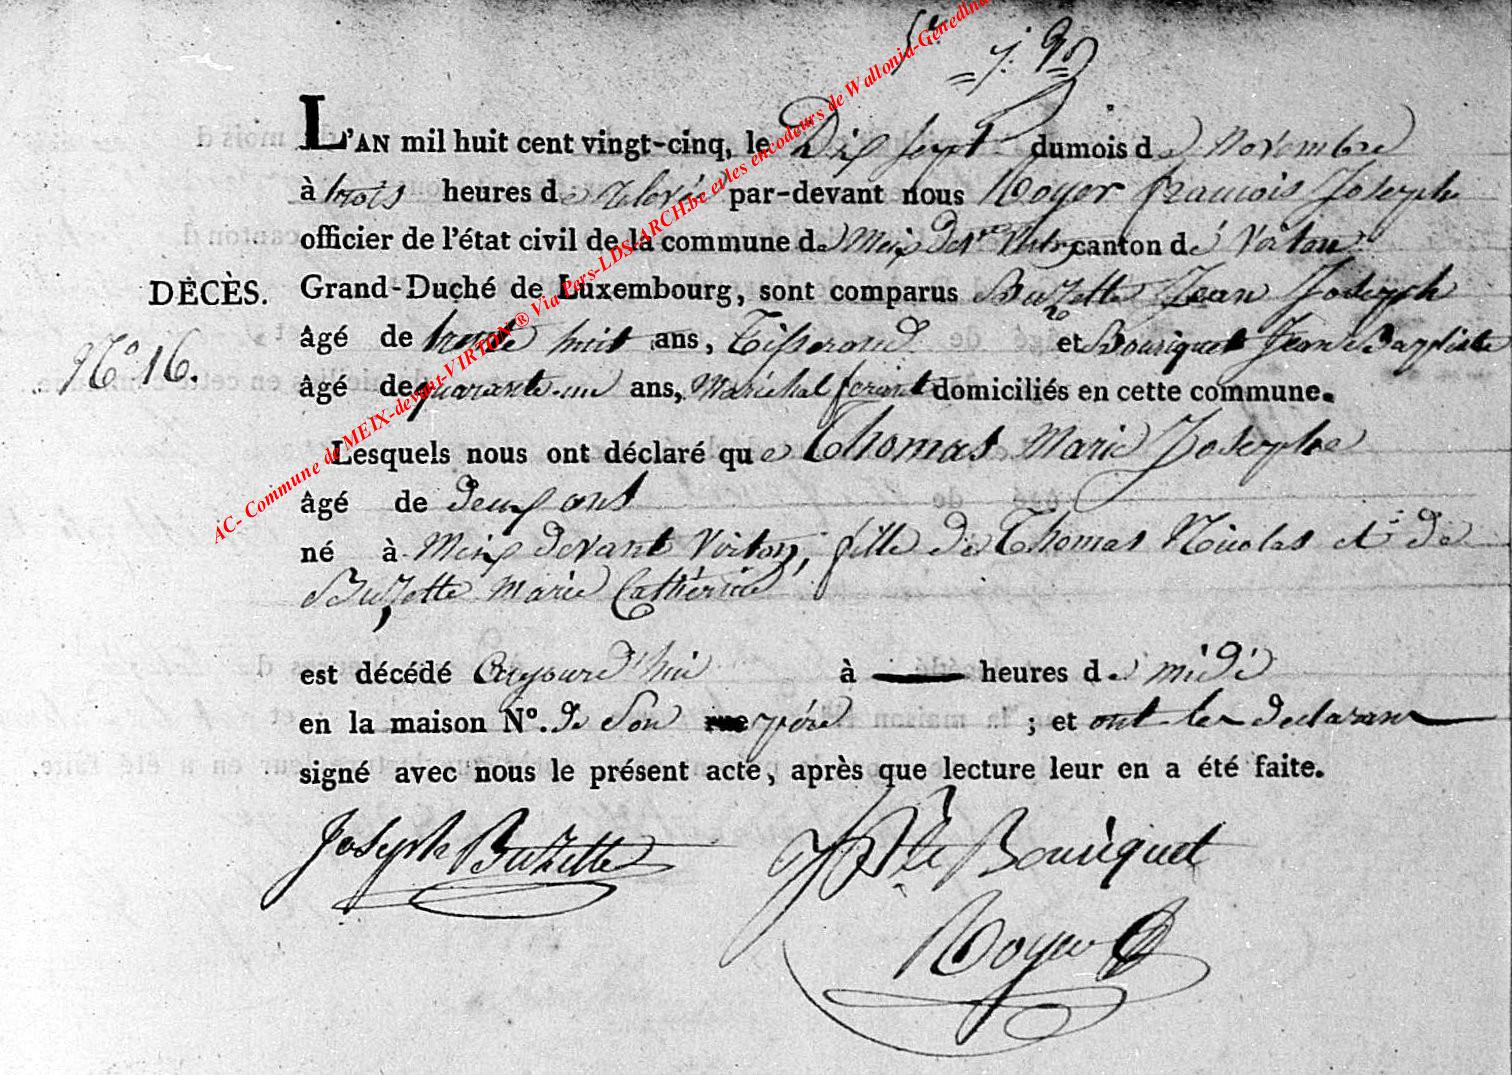 L'AN mil huit cent vingt-cinq, le Dix Sept du mois de Novembre
à trois heures de Relevé par-devant nous Royer francois Joseph
officier de l'état civil de la commune de Meix devt Virton canton de Virton
DÉCÈS. Grand-Duché de Luxembourg, sont comparus Buzette Jean Joseph
âgé de trente huit ans, Tisserand et Bouriquet Jean Baptiste
N° 16. âgé de quarante-un ans, Maréchal ferant domiciliés en cette commune.
Lesquels nous ont déclaré que Thomas Marie Josephe
âgé de deux ans
né à Meix devant Virton, fille de Thomas Nicolas et de
Buzette Marie Catherine
est décédé Aujourd'hui à heures de midi
en la maison N°. de Son rue père ; et ont les declarans
signé avec nous le présent acte, après que lecture leur en a été faite.
Joseph Buzette JBte Bouriquet
Royer
AC- Commune de MEIX-devant-VIRTON ® Via Pers-LDS-ARCH.be et les encodeurs de Wallonia-Genedina